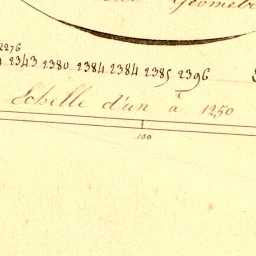 Géomètre
2276
2343 2380 2384 2384 2385 2396
Echelle d'un à 1250
100